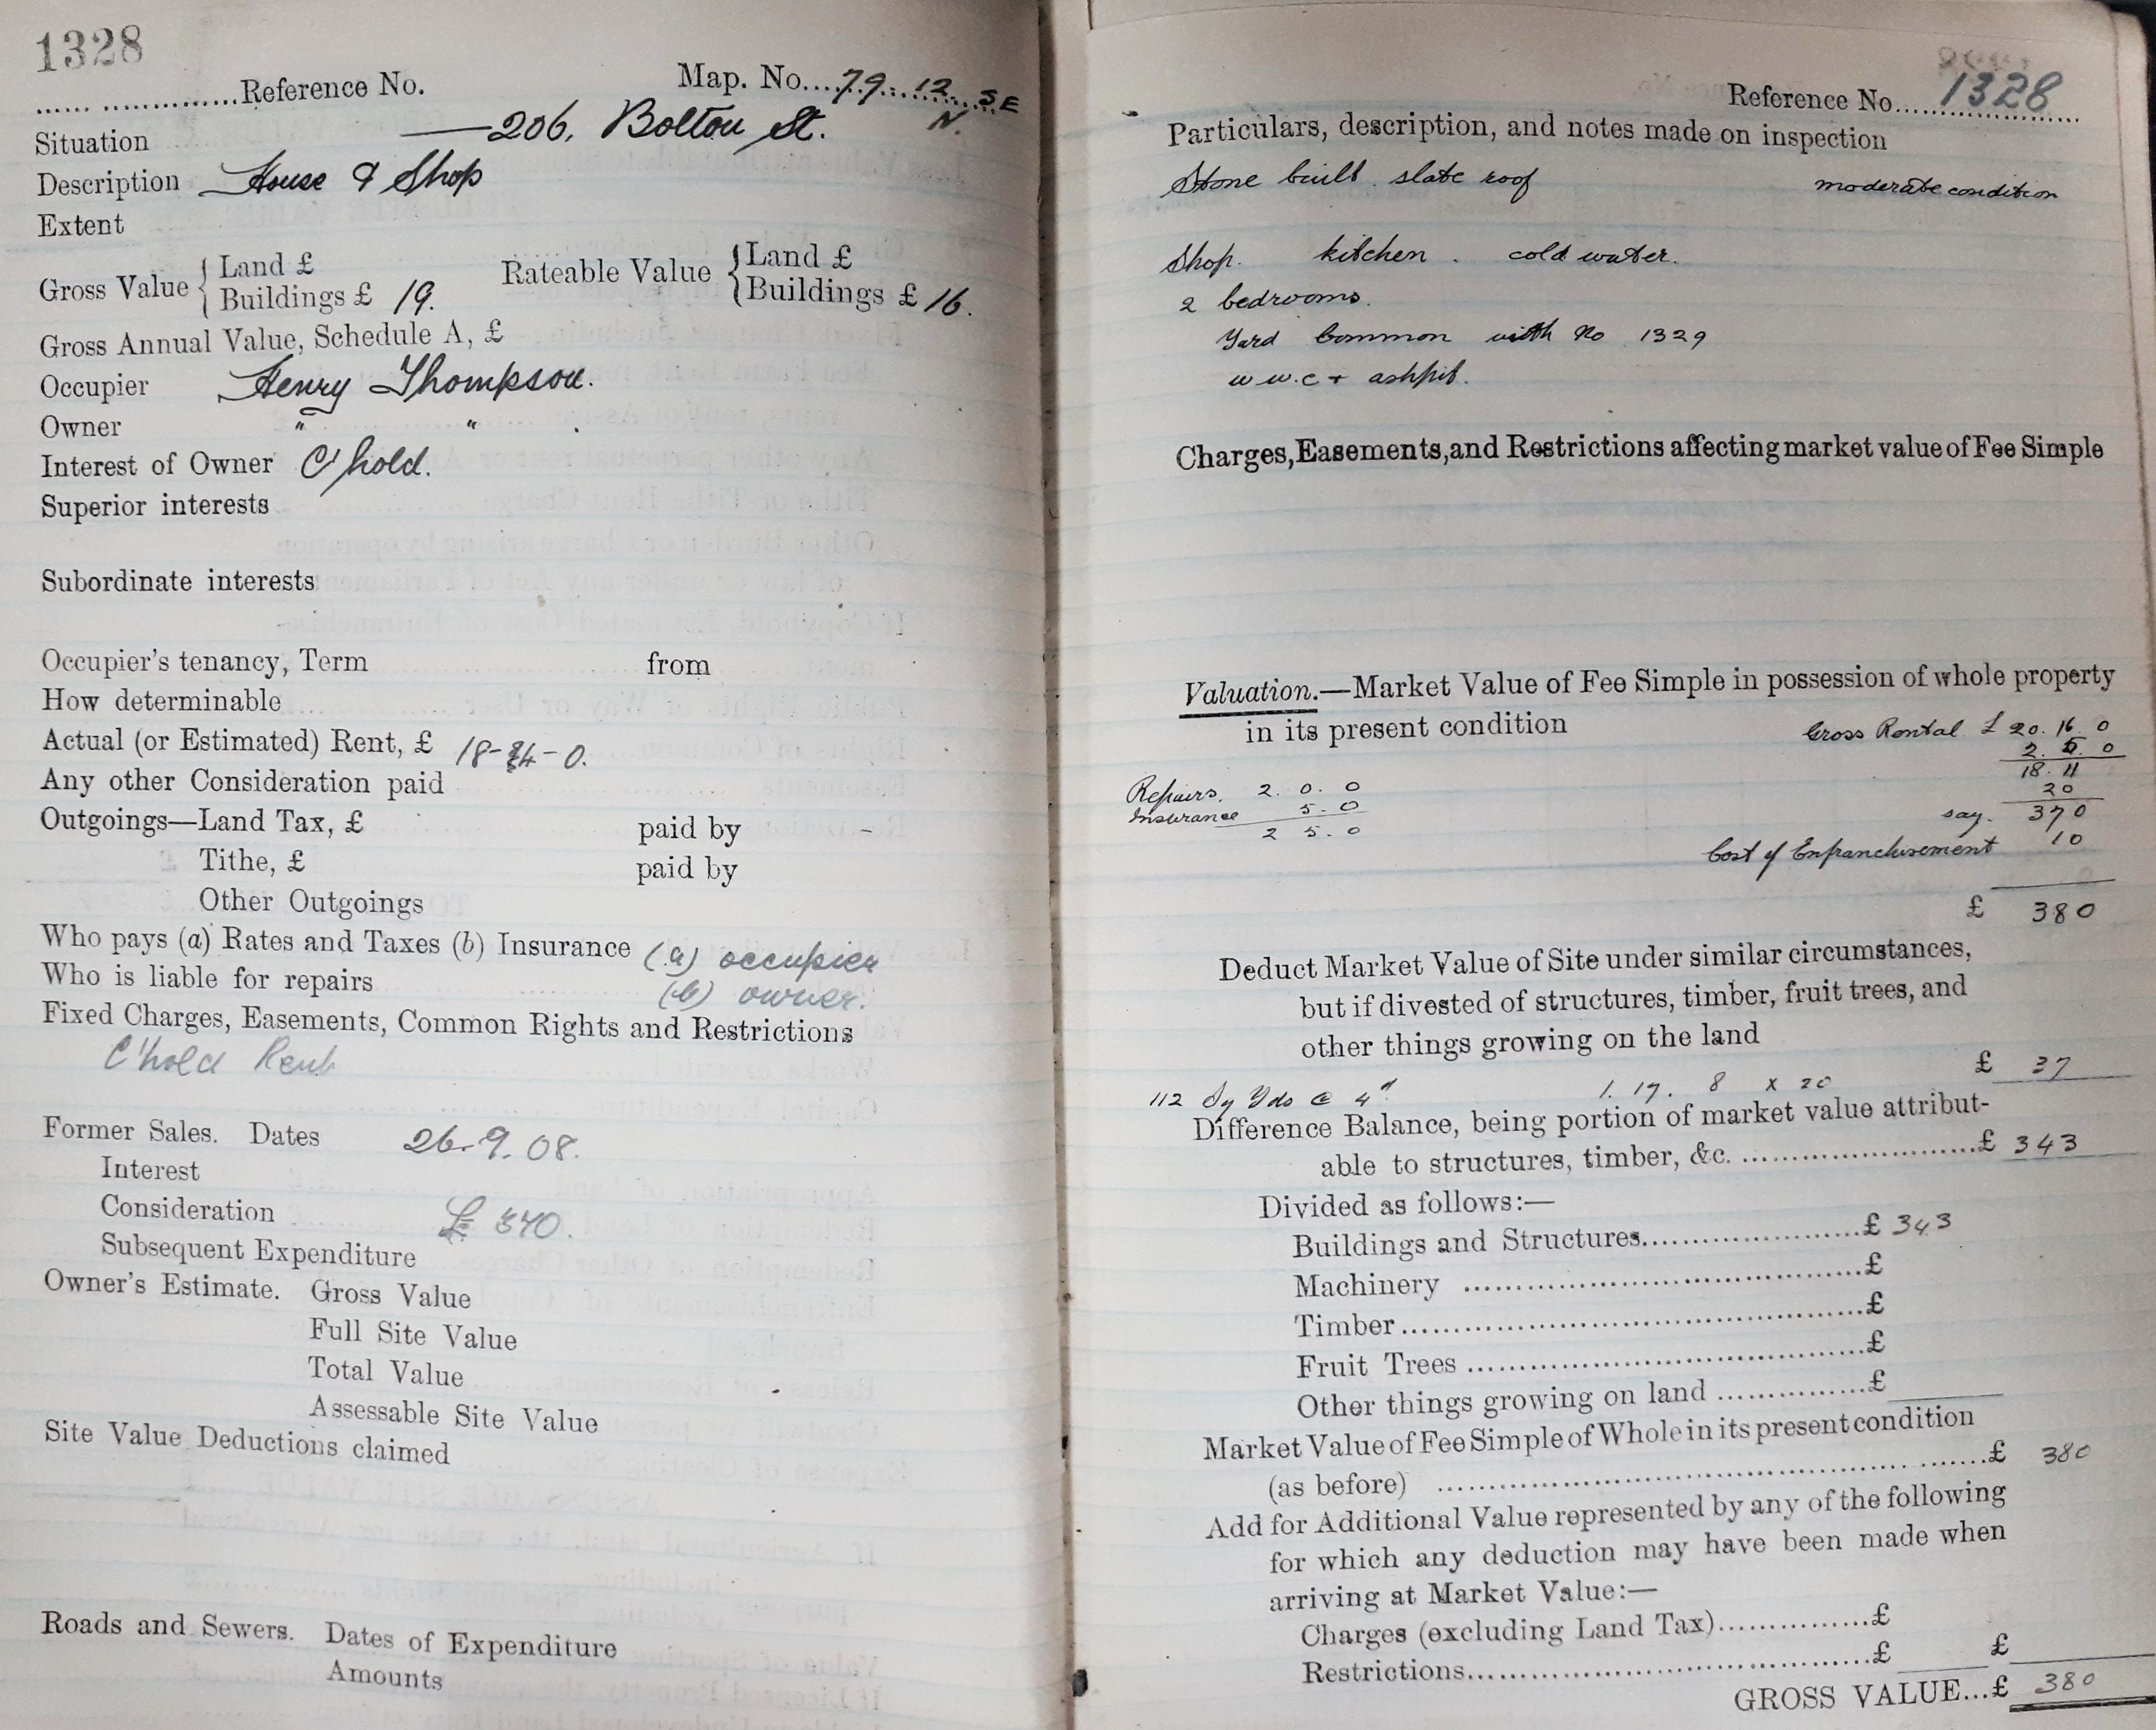 1328
Reference No. Map. No. 79. 12. SE
N.
Situation 206, Bolton St.
Description House & Shop
Extent
Gross Value { Land £
Buildings £ 19. Rateable Value { Land £
Buildings £ 16.
Gross Annual Value, Schedule A, £
Occupier Henry Thompson.
Owner " "
Interest of Owner C'hold.
Superior interests
Subordinate interests
Occupier's tenancy, Term from
How determinable
Actual (or Estimated) Rent, £ 18-4-0.
Any other Consideration paid
Outgoings—Land Tax, £ paid by -
Tithe, £ paid by
Other Outgoings
Who pays (a) Rates and Taxes (b) Insurance (a) occupier
Who is liable for repairs (b) owner.
Fixed Charges, Easements, Common Rights and Restrictions
C'hold Rent
Former Sales. Dates 26.9.08.
Interest
Consideration £340.
Subsequent Expenditure
Owner's Estimate. Gross Value
Full Site Value
Total Value
Assessable Site Value
Site Value Deductions claimed
Roads and Sewers. Dates of Expenditure
Amounts
Reference No. 1328
Particulars, description, and notes made on inspection
Stone built slate roof moderate condition
Shop. kitchen. cold water.
2 bedrooms.
Yard common with No 1329
w w.c + ashpit.
Charges, Easements, and Restrictions affecting market value of Fee Simple
Valuation.—Market Value of Fee Simple in possession of whole property
in its present condition
Gross Rental £ 20. 16. 0
2. 5. 0
18. 11
20
Repairs. 2. 0. 0
Insurance 5. 0
2 5. 0
say. 370
Cost of Enfranchisement 10
£ 380
Deduct Market Value of Site under similar circumstances,
but if divested of structures, timber, fruit trees, and
other things growing on the land
£ 37
112 Sq Yds @ 4d 1. 17. 8 x 20
Difference Balance, being portion of market value attribut-
able to structures, timber, &c. £ 343
Divided as follows:—
Buildings and Structures £ 343
Machinery £
Timber £
Fruit Trees £
Other things growing on land £
Market Value of Fee Simple of Whole in its present condition
(as before) £ 380
Add for Additional Value represented by any of the following
for which any deduction may have been made when
arriving at Market Value:—
Charges (excluding Land Tax) £
Restrictions £ £
GROSS VALUE...£ 380